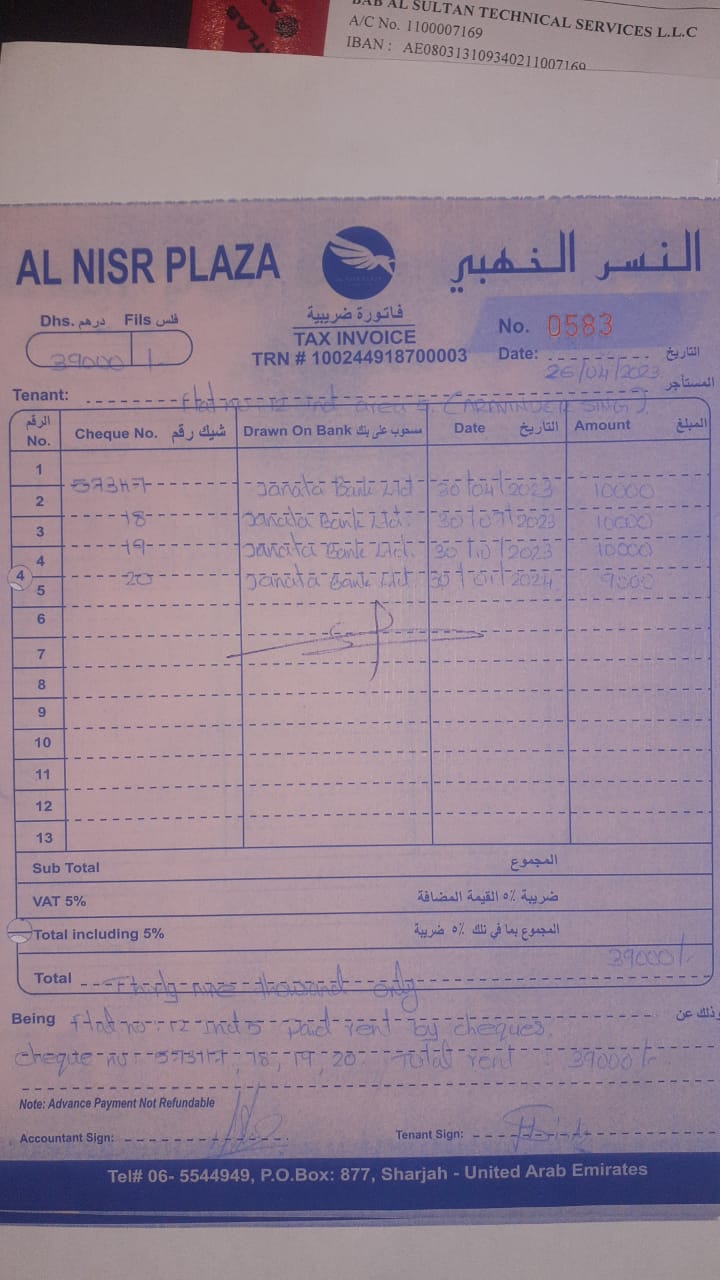 BAB AL SULTAN TECHNICAL SERVICES L.L.C
A/C No. 1100007169
IBAN : AE080313109340211007169
AL NISR PLAZA
النسر الذهبي
Dhs. درهم Fils فلس
39000 /-
فاتورة ضريبية
TAX INVOICE
TRN # 100244918700003
No. 0583
Date: 26/04/2023 التاريخ
Tenant: Flat no 12 ind area 5. المستأجر
الرقم No. Cheque No. شيك رقم Drawn On Bank مسحوب على بنك Date التاريخ Amount المبلغ
1 Janata Bank Ltd 30/04/2023 10000
2 18 Janata Bank Ltd. 30/07/2023 10000
3 19 Janata Bank Ltd. 30/10/2023 10000
4 20 Janata Bank Ltd 30/01/2024 9000
4
5
6
7
8
9
10
11
12
13
Sub Total المجموع
VAT 5% ضريبة ٥٪ القيمة المضافة
Total including 5% المجموع بما في ذلك ٥٪ ضريبة
39000/-
Total Thirty nine thousand only
Being flat no 12 ind 5 paid rent by cheques. وذلك عن
cheque no 18, 19, 20 Total rent : 39000/-
Note: Advance Payment Not Refundable
Accountant Sign: Tenant Sign:
Tel# 06- 5544949, P.O.Box: 877, Sharjah - United Arab Emirates